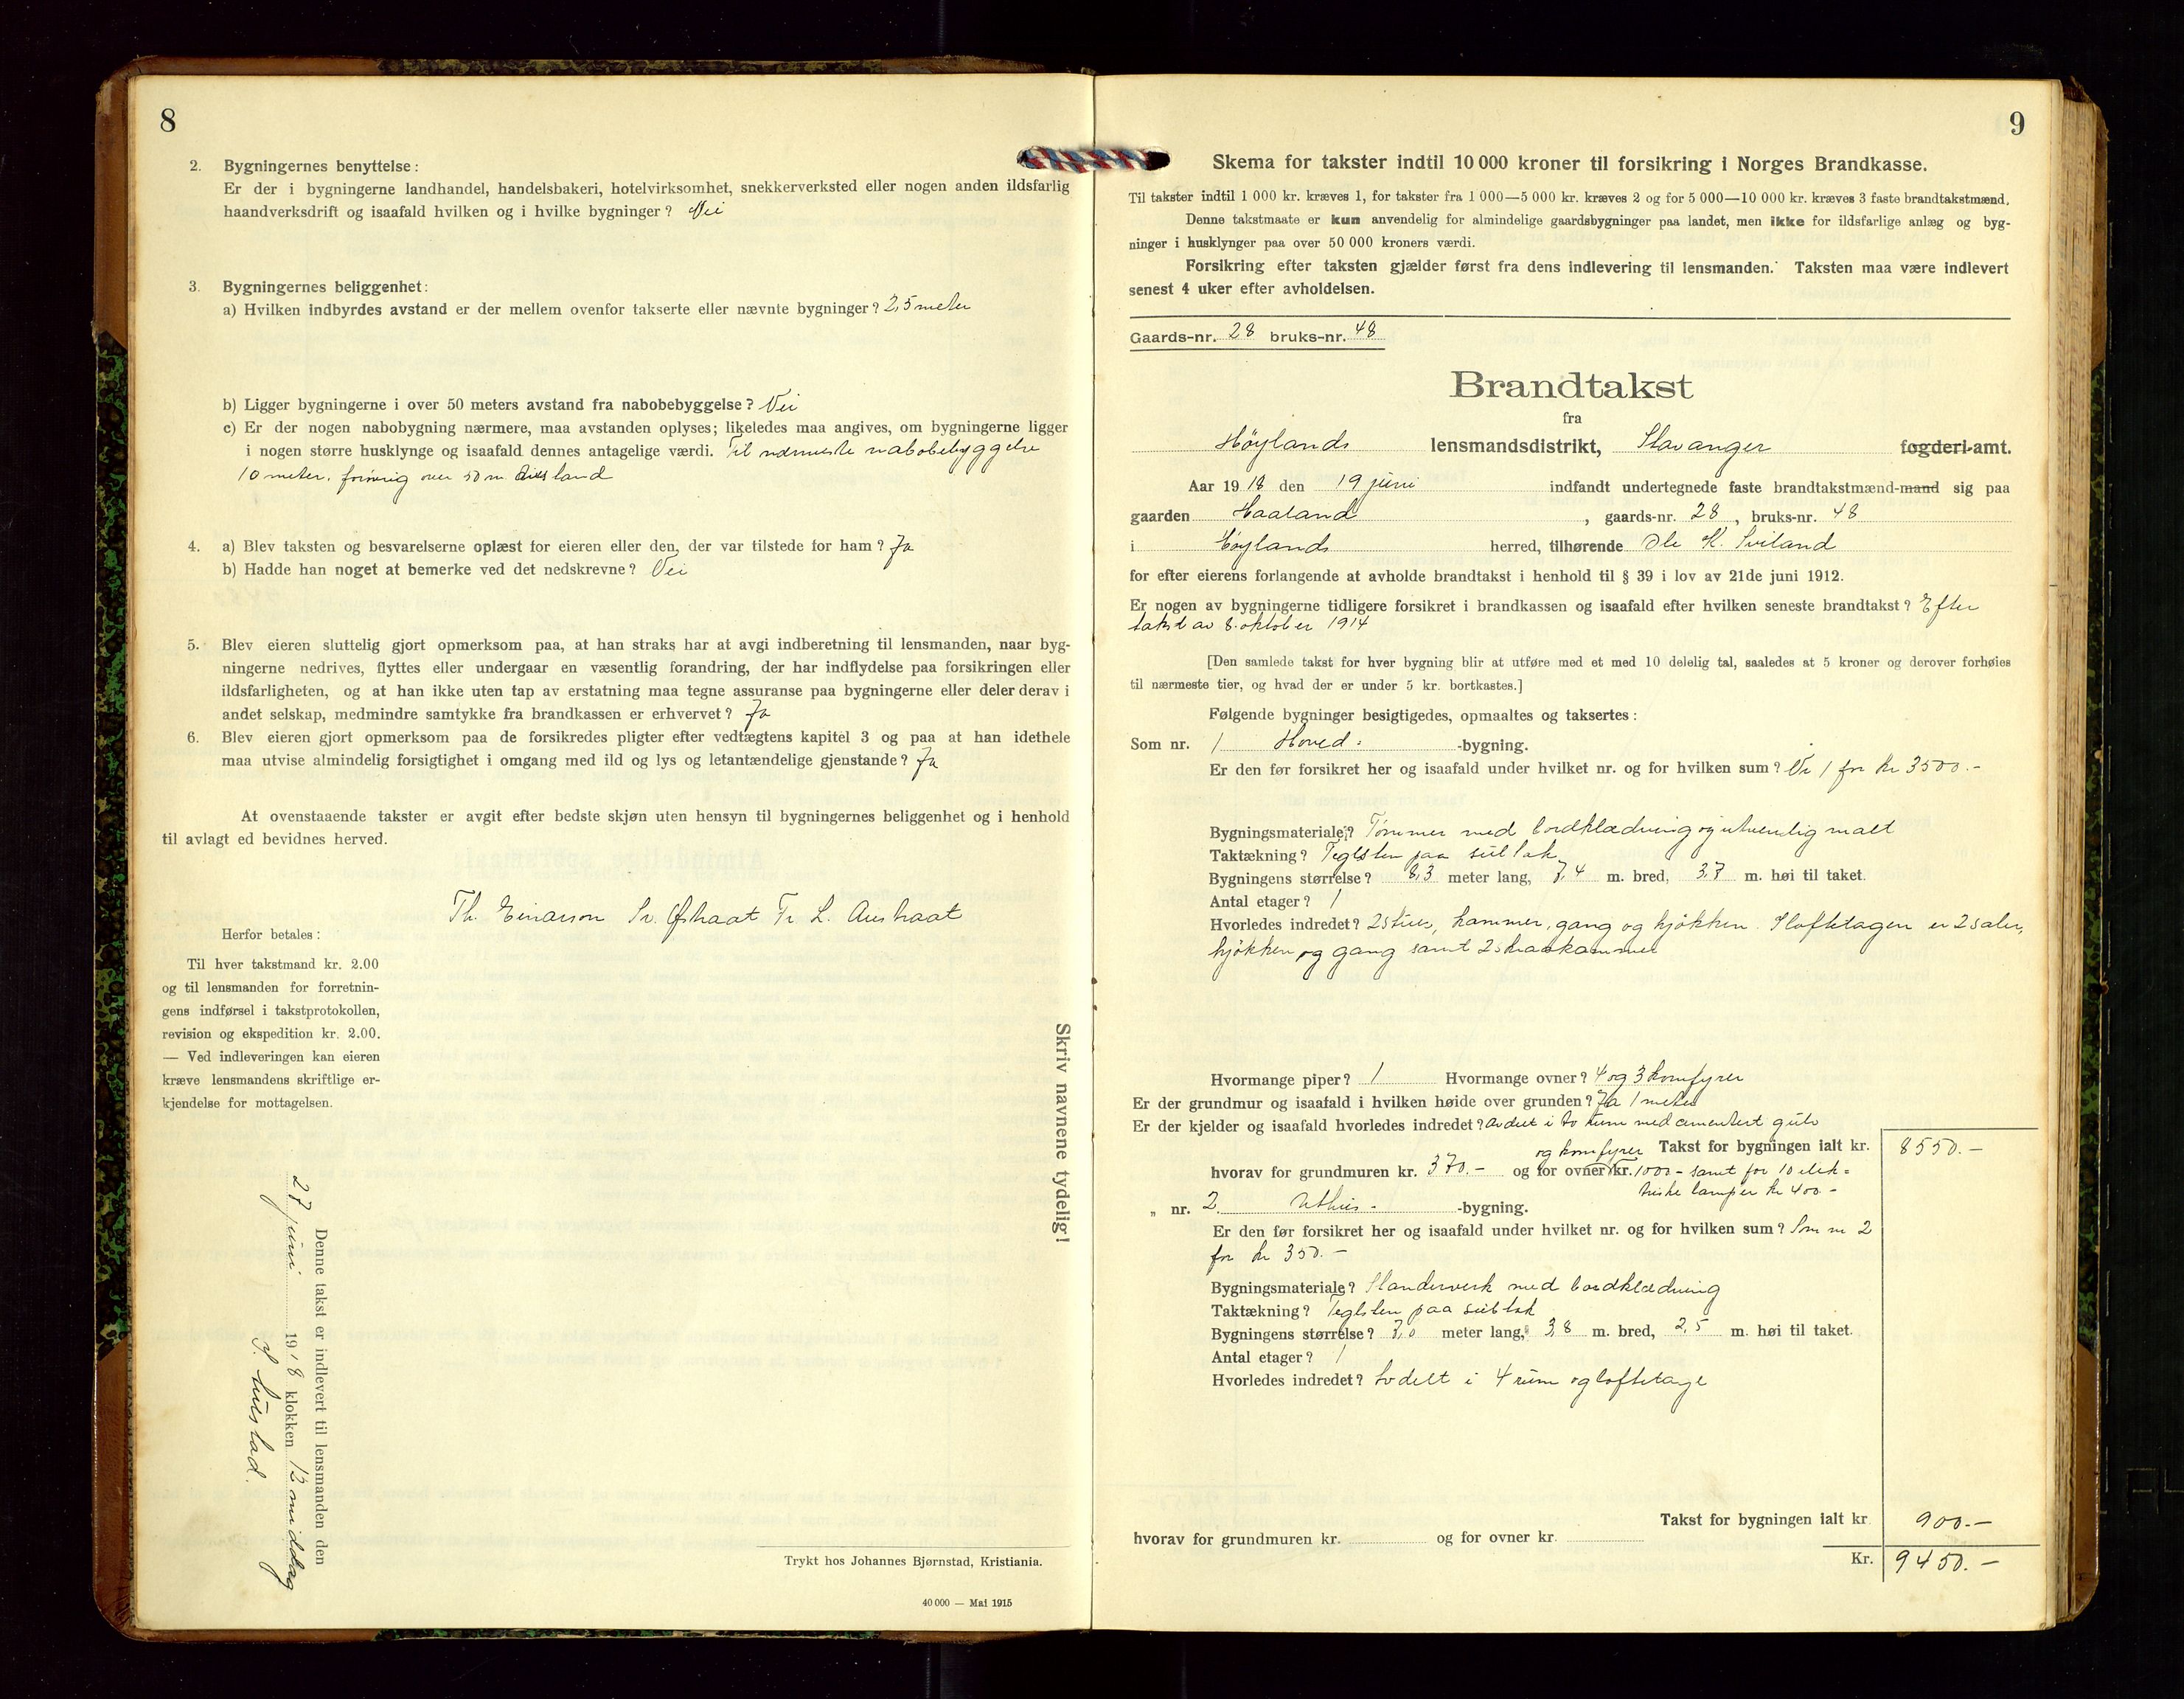 8
2. Bygningernes benyttelse:
Er der i bygningerne landhandel, handelsbakeri, hotelvirksomhet, snekkerverksted eller nogen anden ildsfarlig
haandverksdrift og isaafald hvilken og i hvilke bygninger? Nei
3. Bygningernes beliggenhet:
a) Hvilken indbyrdes avstand er der mellem ovenfor takserte eller nævnte bygninger? 2,5 meter
b) Ligger bygningerne i over 50 meters avstand fra nabobebyggelse? Nei
c) Er der nogen nabobygning nærmere, maa avstanden oplyses; likeledes maa angives, om bygningerne ligger
i nogen større husklynge og isaafald dennes antagelige værdi. Til nærmeste nabobebyggelse
10 meter, forøvrig over 50 m avstand
4. a) Blev taksten og besvarelserne oplæst for eieren eller den, der var tilstede for ham? Ja
b) Hadde han noget at bemerke ved det nedskrevne? Nei
5. Blev eieren sluttelig gjort opmerksom paa, at han straks har at avgi indberetning til lensmanden, naar byg-
ningerne nedrives, flyttes eller undergaar en væsentlig forandring, der har indflydelse paa forsikringen eller
ildsfarligheten, og at han ikke uten tap av erstatning maa tegne assuranse paa bygningerne eller deler derav i
andet selskap, medmindre samtykke fra brandkassen er erhvervet? Ja
6. Blev eieren gjort opmerksom paa de forsikredes pligter efter vedtægtens kapitel 3 og paa at han idethele
maa utvise almindelig forsigtighet i omgang med ild og lys og letantændelige gjenstande? Ja
At ovenstaaende takster er avgit efter bedste skjøn uten hensyn til bygningernes beliggenhet og i henhold
til avlagt ed bevidnes herved.
Th. Einarson Sv. Østraat Tr L. Austraat
Herfor betales:
Til hver takstmand kr. 2.00
og til lensmanden for forretnin-
gens indførsel i takstprotokollen,
revision og ekspedition kr. 2.00.
— Ved indleveringen kan eieren
kræve lensmandens skriftlige er-
kjendelse for mottagelsen.
Skriv navnene tydelig!
Denne takst er indlevert til lensmanden den
27 juni 1918 klokken 12 middag
Trykt hos Johannes Bjørnstad, Kristiania.
40 000 — Mai 1915
9
Skema for takster indtil 10 000 kroner til forsikring i Norges Brandkasse.
Til takster indtil 1 000 kr. kræves 1, for takster fra 1 000—5 000 kr. kræves 2 og for 5 000—10 000 kr. kræves 3 faste brandtakstmænd.
Denne takstmaate er kun anvendelig for almindelige gaardsbygninger paa landet, men ikke for ildsfarlige anlæg og byg-
ninger i husklynger paa over 50 000 kroners værdi.
Forsikring efter taksten gjælder først fra dens indlevering til lensmanden. Taksten maa være indlevert
senest 4 uker efter avholdelsen.
Gaards-nr. 28 bruks-nr. 48
Brandtakst
fra
Höylands lensmandsdistrikt, Stavanger fogderi-amt.
Aar 1918 den 19 juni indfandt undertegnede faste brandtakstmænd-mand sig paa
gaarden Haaland, gaards-nr. 28, bruks-nr. 48
i Höylands herred, tilhørende Ole K. Sviland
for efter eierens forlangende at avholde brandtakst i henhold til § 39 i lov av 21de juni 1912.
Er nogen av bygningerne tidligere forsikret i brandkassen og isaafald efter hvilken seneste brandtakst? Efter
takst av 8. oktober 1914
[Den samlede takst for hver bygning blir at utføre med et med 10 delelig tal, saaledes at 5 kroner og derover forhøies
til nærmeste tier, og hvad der er under 5 kr. bortkastes.]
Følgende bygninger besigtigedes, opmaaltes og taksertes:
Som nr. 1 Hoved- -bygning.
Er den før forsikret her og isaafald under hvilket nr. og for hvilken sum? Nr 1 for kr 3500.-
Bygningsmateriale? Tömmer med bordklædning og utvendig malt
Taktækning? Teglsten paa sutak
Bygningens størrelse? 8,3 meter lang, 7,4 m. bred, 3,7 m. høi til taket.
Antal etager? 1
Hvorledes indredet? 2 stuer, kammer, gang og kjøkken. I loftetagen er 2 saler,
kjøkken og gang samt 2 skraakammer
Hvormange piper? 1 Hvormange ovner? 4 og 3 komfyrer
Er der grundmur og isaafald i hvilken høide over grunden? Ja 1 meter
Er der kjelder og isaafald hvorledes indredet? Avdelt i to rum med cementert gulv
og komfyrer Takst for bygningen ialt kr. 8550.-
hvorav for grundmuren kr. 370.- og for ovner kr. 1000- samt for 10 elek-
triske lamper kr 400-
„ nr. 2 Uthus- -bygning.
Er den før forsikret her og isaafald under hvilket nr. og for hvilken sum? Som nr 2
for kr 350.-
Bygningsmateriale? Standerverk med bordklædning
Taktækning? Teglsten paa sutak
Bygningens størrelse? 7,0 meter lang, 3,8 m. bred, 2,5 m. høi til taket.
Antal etager? 1
Hvorledes indredet? Avdelt i 4 rum og loftetage
Takst for bygningen ialt kr. 900.-
hvorav for grundmuren kr. og for ovner kr.
Kr. 9450.-